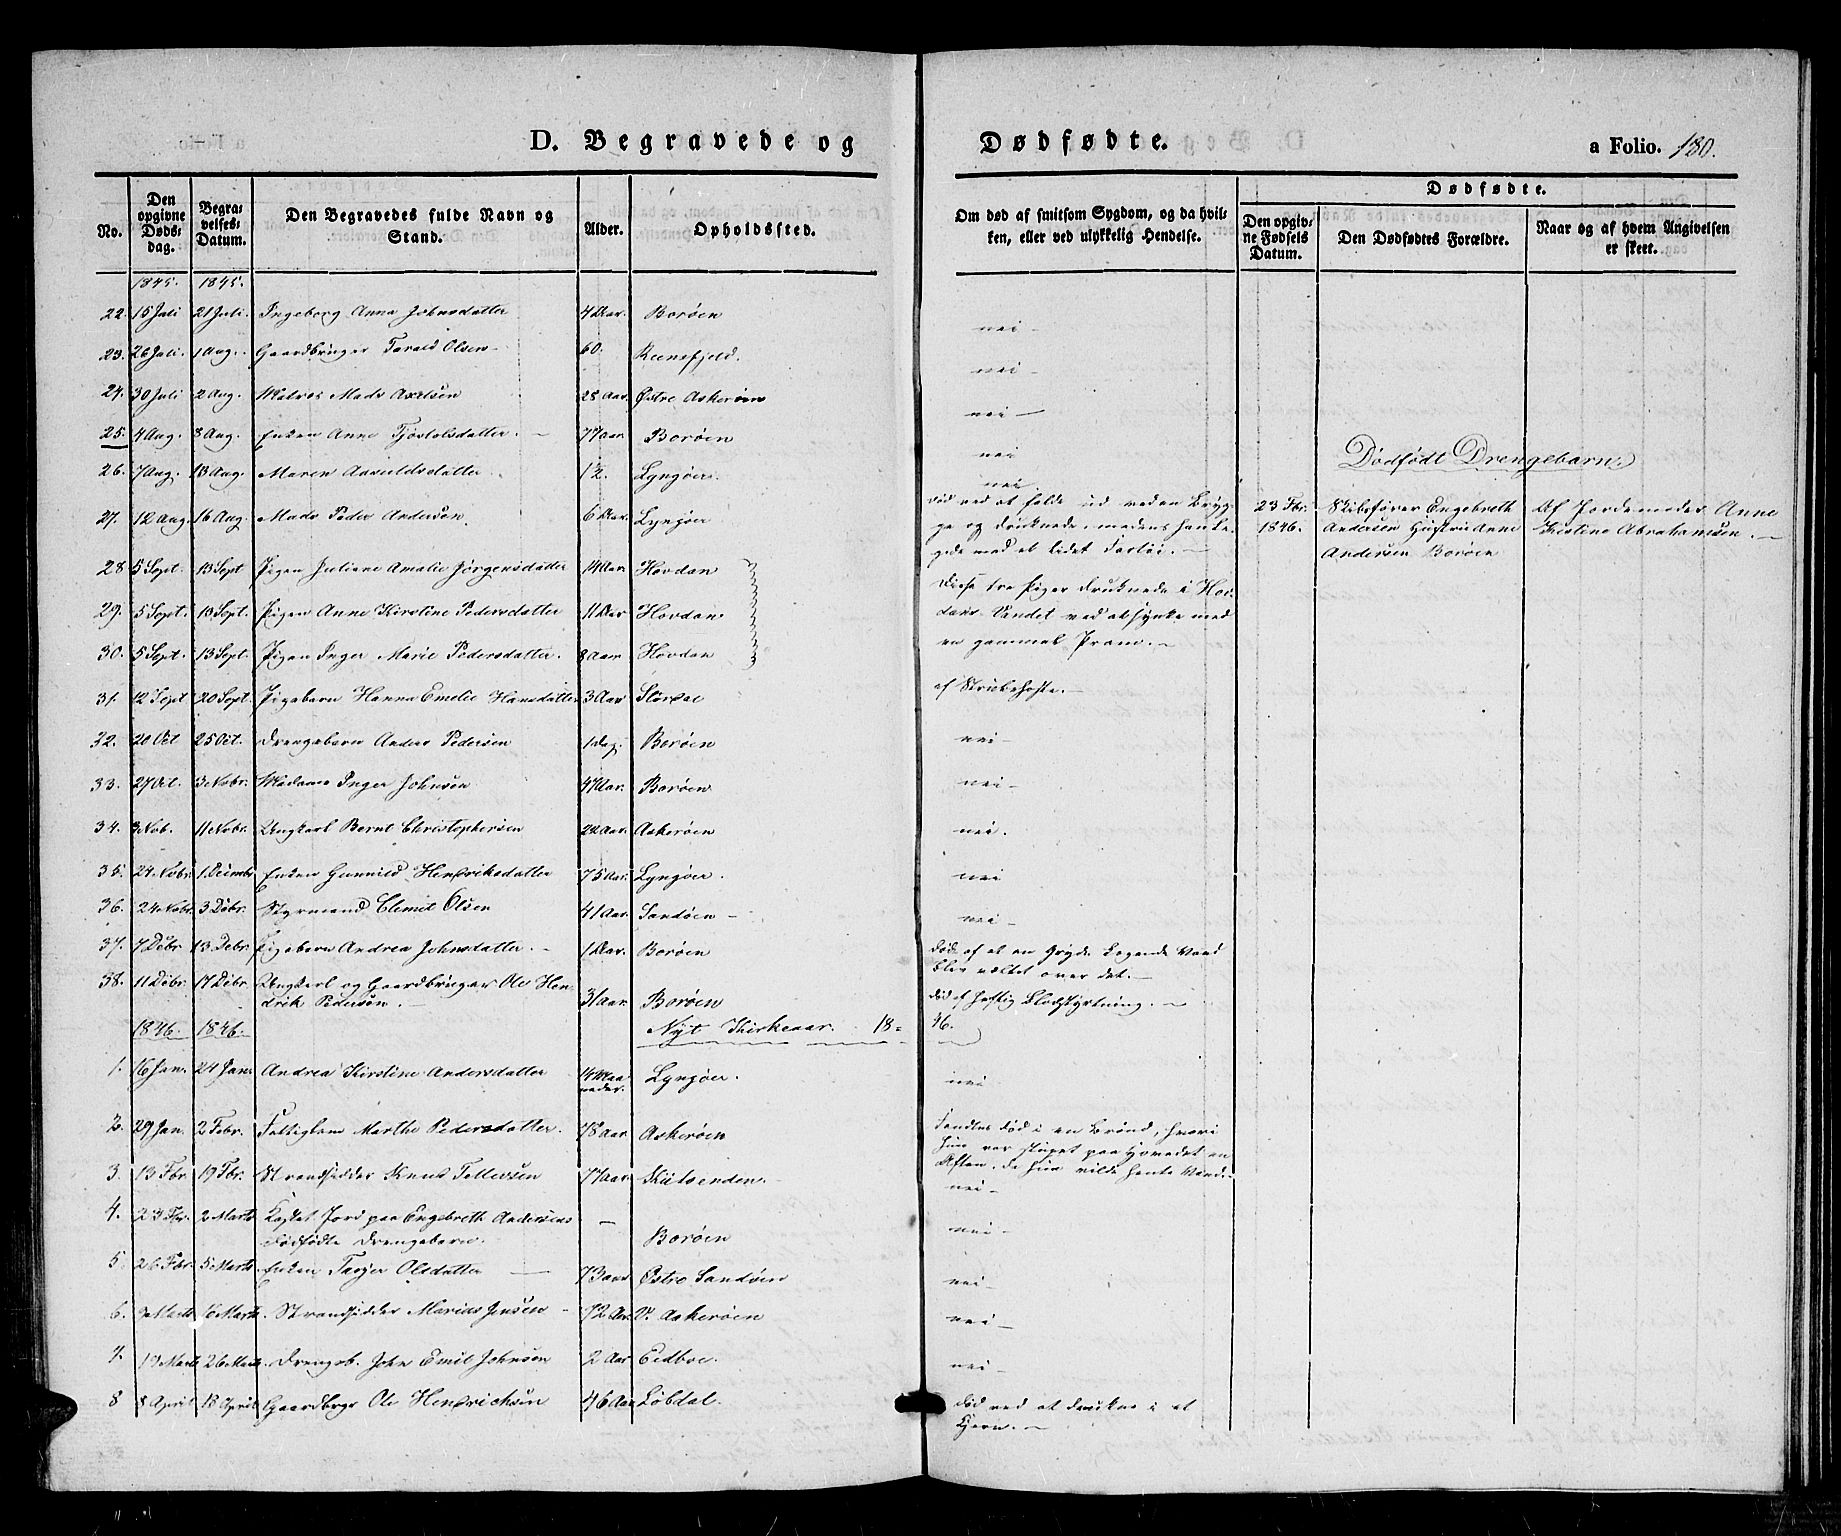 D. Begravede og Dødfødte. a Folio. 180.
No. Den opgivne Døds-dag. Begra-velses-Datum. Den Begravedes fulde Navn og Stand. Alder. Opholdssted. Om død af smitsom Sygdom, og da hvil-ken, eller ved ulykkelig Hendelse. Dødfødte. Den opgiv-ne Fødsels Datum. Den Dødfødtes Forældre. Naar og af hvem Angivelsen er skeet.
1845. 1845.
22. 15 Juli 21 Juli. Ingeborg Anna Johnsdatter 4 Aar. Borøen nei
23. 26 Juli. 1 Aug. Gaardbruger Tarald Olsen 60. Reenefjeld. nei
24. 30 Juli 2 Aug. Matros Mads Axelsen 28 Aar. Østre Askerøen nei
25. 4 Aug. 8 Aug. Enken Anne Tjøstolsdatter. 77 aar. Borøen nei
Dødfødt Drengebarn.
26. 7 Aug. 13 Aug. Maren Aanildsdatter 12. Lyngøer. nei
27. 12 Aug. 16 Aug. Mads Peder Andersøn. 6 Aar. Lyngøer død ved at falde ud ved en Bryg-
ge og druknede, medens han le-
gede med et lidet Fartøi.
23 Fbr. 1846. Skibsfører Engebreth
Andersen Hustru Anne
Andersen Borøen
Af Jordemoder Anne
Kirstine Abrahamsen.
28 5 Sept. 13 Sept Pigen Juliane Amalie Jørgensdatter 14 Aar. Hovdan Disse tre Piger druknede i Hov-
29. 5 Sept. 13 Sept. Pigen Anne Kirstine Pedersdatter 11 Aar Hovdan. dans Vandet ved at synke med
30. 5 Sept. 13 Sept. Pigen Inger Marie Pedersdatter. 8 Aar Hovdan en gammel Pram.
31. 12 Sept 20 Sept. Pigebarn Hanna Emelie Hansdatter 3 Aar Størdal af Strubehoste.
32. 20 Oct 25 Oct. Drengebarn Anders Pedersen 1 dag. Borøen nei
33. 27 Oct. 3 Nobr. Madame Inger Johnsøn 47 Aar. Borøen nei
34. 3 Nob. 11 Nobr. Ungkarl Bernt Christophersen 22 Aar. Askerøen nei.
35. 24 Nobr. 1 Decembr Enken Gunnild Hendriksdatter 75 Aar. Lyngøer. nei
36. 24 Nobr. 3 Debr. Styrmand Clemet Olsen 41 Aar Sandøen nei
37. 7 Debr. 13 Debr. Pigebarn Andrea Johnsdatter. 1 Aar. Borøen død af at en Gryde kogende Vand
blev væltet over det.
38. 11 Debr. 17 Debr. Ungkarl og Gaardbruger Ole Hen-
drik Pedersøn. 31 Aar. Borøen død af heftig Blodstyrtning.
1846. 1846. Nyt Kirkeaar. 18=46.
1. 16 Jan. 24 Jan. Andrea Kirstine Andersdatter 14 Maa
neder. Lyngøer. nei
2. 29 Jan. 2 Febr. Fattiglem Marthe Pedersdatter. 78 Aar. Askerøen Fandtes død i en Brønd, hvori
hun var stupet paa Hovedet en
Aften, da hun vilde hente Vand.
3. 13 Fbr. 19 Fbr. Strandsidder Knud Tellevsen 77 aar. nei
4. 23 Fbr. 2 Marts Kastet Jord paa Engebreth Andersens
dødfødte Drengebarn. Borøen nei
5. 26 Fbr. 5 Marts Enken Tarjer Olsdatter 73 aar Østre Sandøen nei
6. Marts 16 Marts. Strandsidder Marius Jensen 72 Aar. V. Askerøen nei
7. 19 Marts 26 Marts. Drengeb. John Emil Johnsøn 2 Aar Eidboe. nei
8 8 April 13 April Gaardbrgr Ole Hendrichsøn 46 Aar Løbdal. død ved at drukne i et
Kjern.